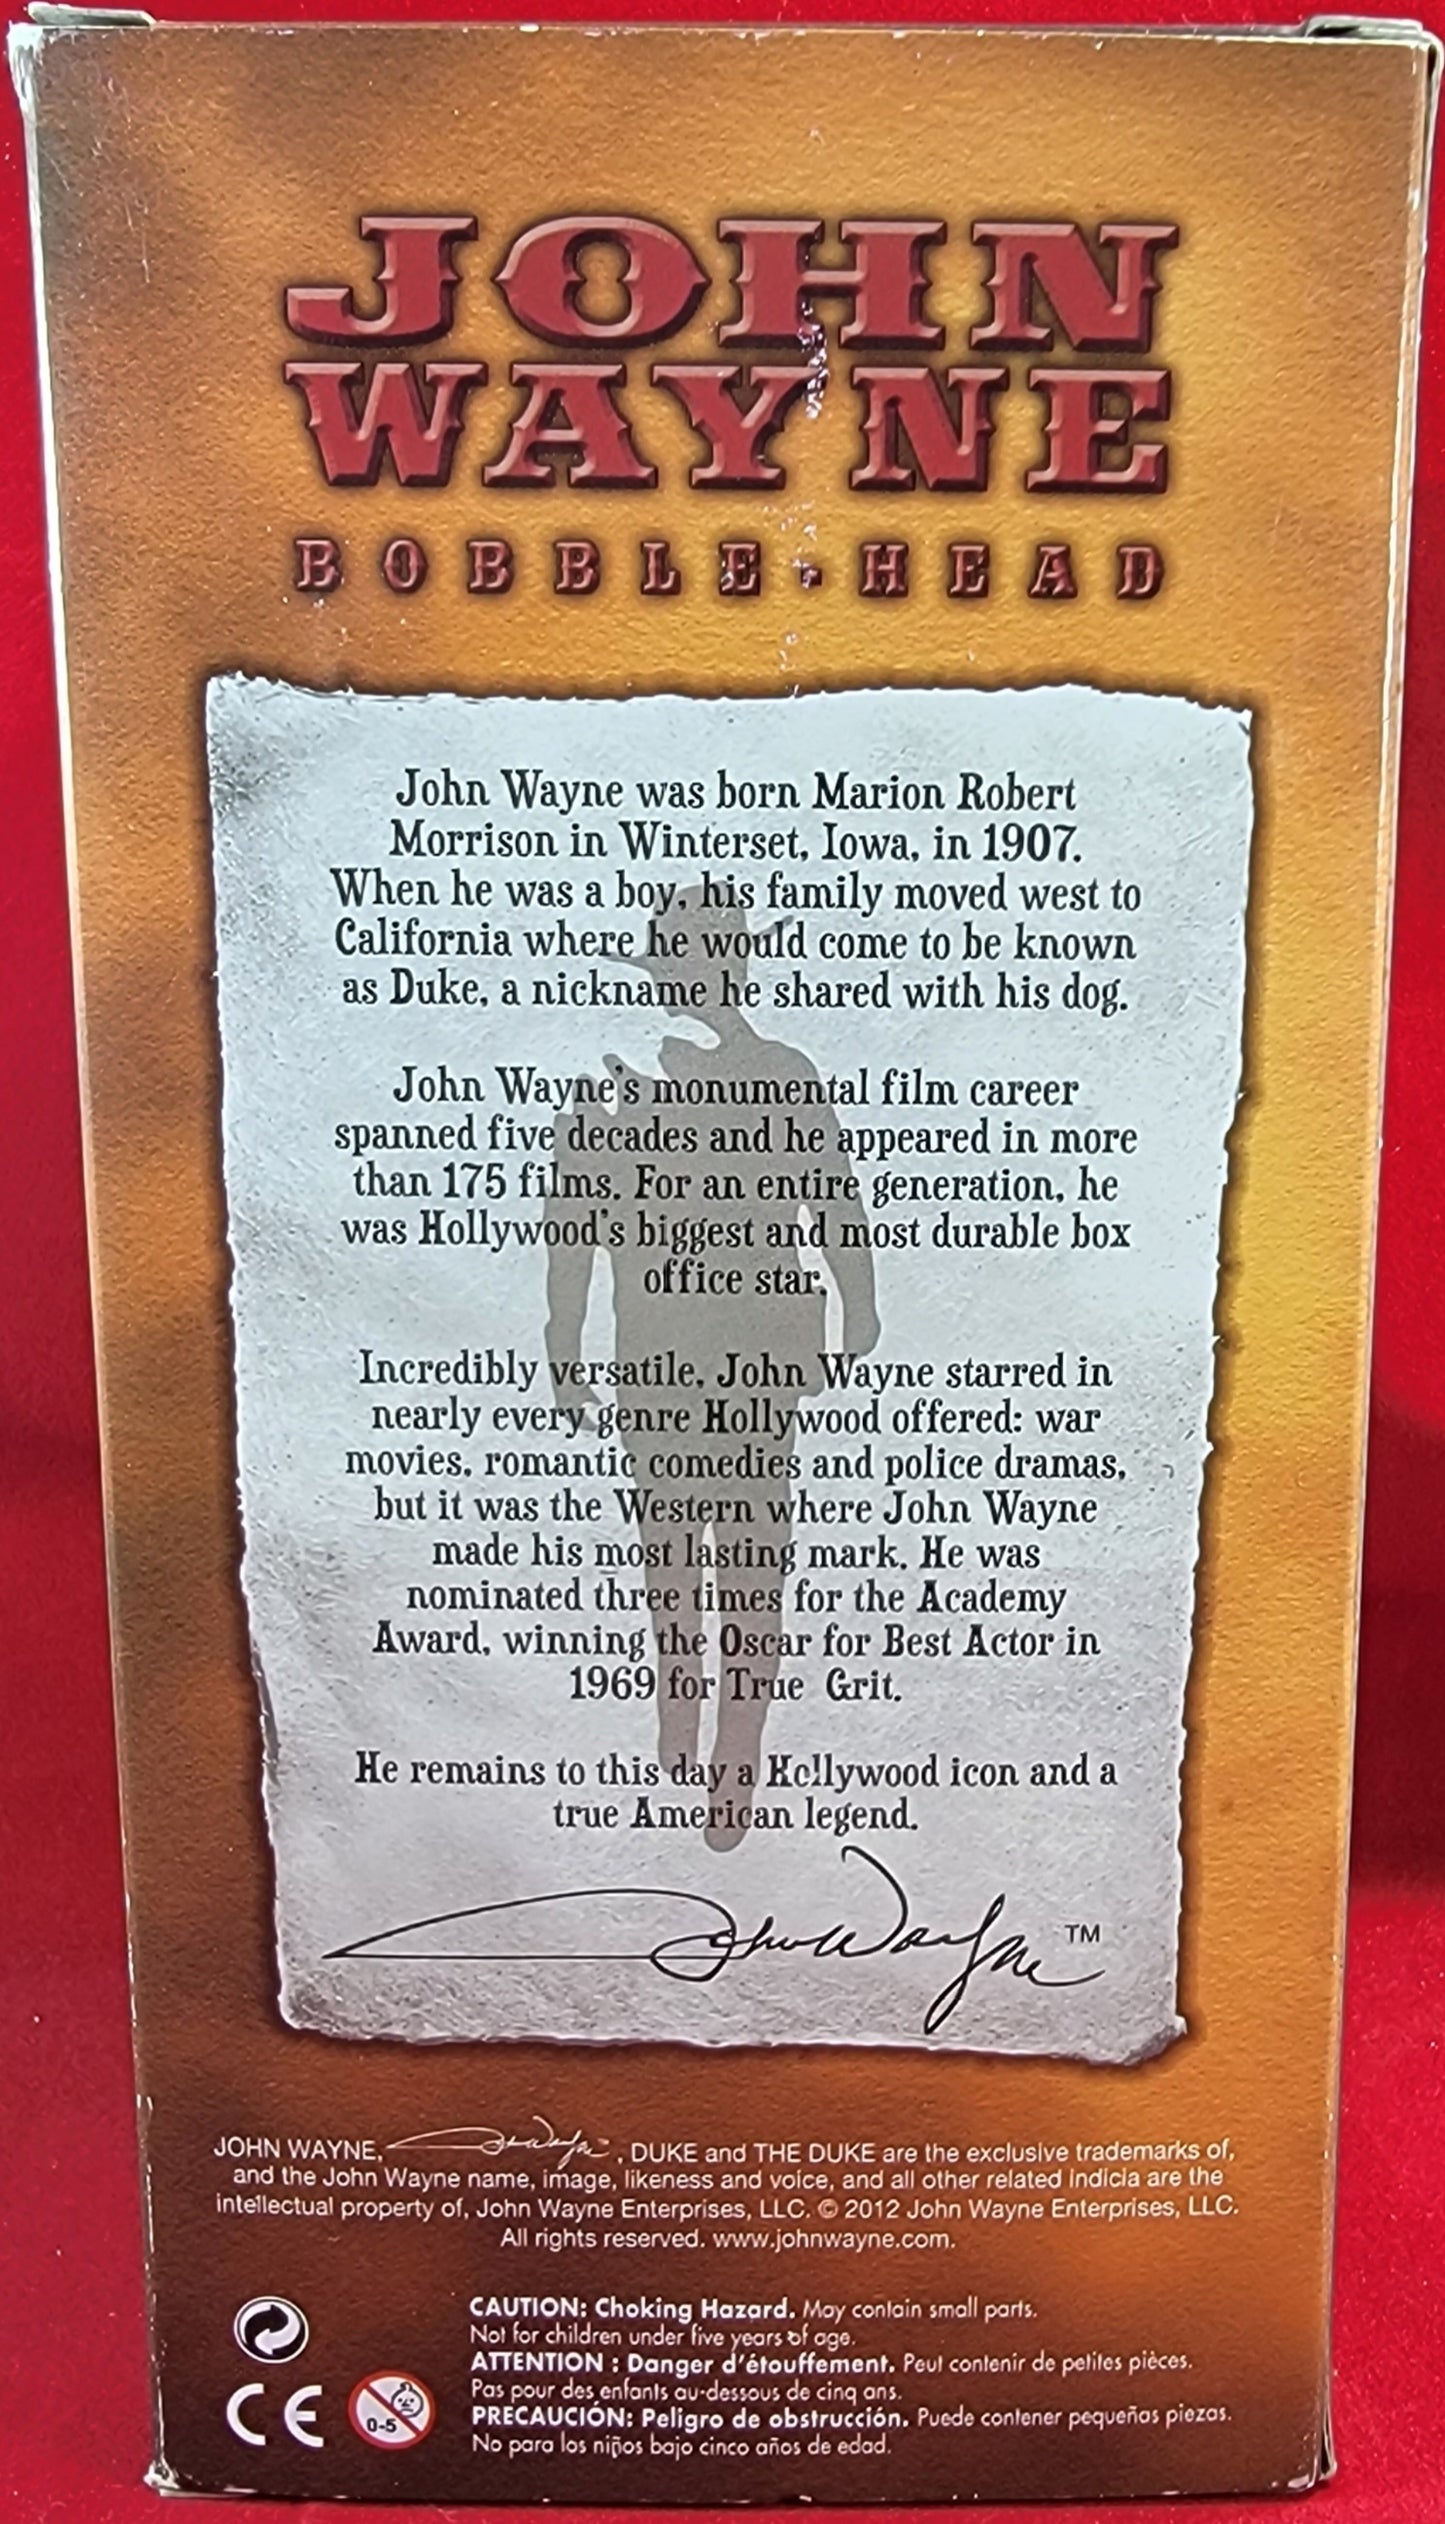 JOHN
WAYNE
BOBBLE-HEAD
John Wayne was born Marion Robert
Morrison in Winterset, Iowa, in 1907.
When he was a boy, his family moved west to
California where he would come to be known
as Duke, a nickname he shared with his dog.
John Wayne's monumental film career
spanned five decades and he appeared in more
than 175 films. For an entire generation, he
was Hollywood's biggest and most durable box
office star.
Incredibly versatile, John Wayne starred in
nearly every genre Hollywood offered: war
movies, romantic comedies and police dramas,
but it was the Western where John Wayne
made his most lasting mark. He was
nominated three times for the Academy
Award, winning the Oscar for Best Actor in
1969 for True Grit.
He remains to this day a Hollywood icon and a
true American legend.
John Wayne ™
JOHN WAYNE, John Wayne, DUKE and THE DUKE are the exclusive trademarks of,
and the John Wayne name, image, likeness and voice, and all other related indicia are the
intellectual property of, John Wayne Enterprises, LLC. © 2012 John Wayne Enterprises, LLC.
All rights reserved. www.johnwayne.com.
CAUTION: Choking Hazard. May contain small parts.
Not for children under five years of age.
ATTENTION : Danger d'étouffement. Peut contenir de petites pièces.
Pas pour des enfants au-dessous de cinq ans.
PRECAUCIÓN: Peligro de obstrucción. Puede contener pequeñas piezas.
No para los niños bajo cinco años de edad.
CE 0-5